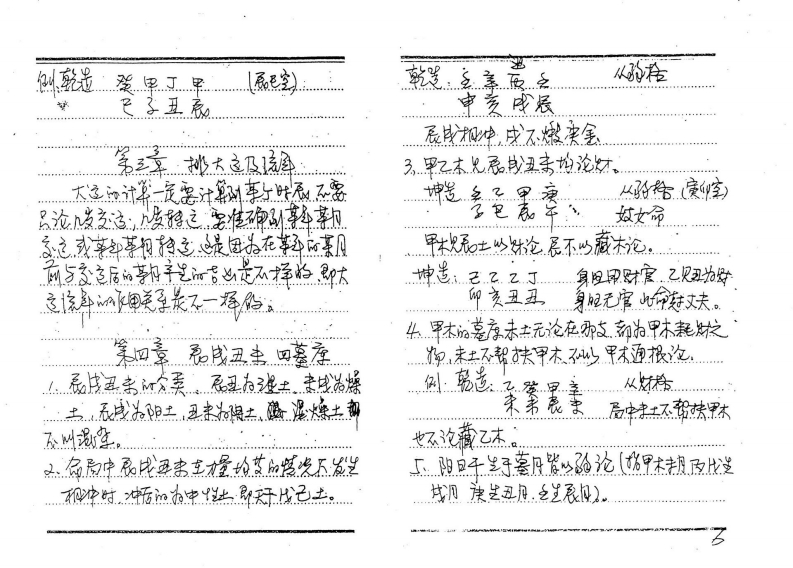 例:乾造 癸甲丁甲 (辰巳空)
巳子丑辰
第三章 排大运及流年
大运的计算一定要计算到某分时辰,不要
只论几岁交运,几岁转运,要准确到某年某月
交运或某年某月转运,这是因为在某年的某月
前与交运后的某月产生的吉凶是不一样的,即大
运流年的作用关系是不一样的。
第四章 辰戌丑未四墓库
1、辰戌丑未的分类,辰丑为湿土,未戌为燥
土,辰戌为阳土,丑未为阴土,湿燥土
不叫混杂。
2、命局中辰戌丑未在力量均等的情况下发生
相冲时,冲后的为中性土,即天干戊己土。
乾造:壬辛丙壬 从弱格
申亥戌辰
辰戌相冲,戌不燥
3、甲乙木见辰戌丑未均论财。
坤造 壬乙甲庚 从弱格(寅卯空)
子巳辰午 妓女命
甲木见辰土以财论,辰不以藏木论。
坤造:己乙乙丁 身旺用财官,乙见丑为财
卯亥丑丑 身旺无官,此命克丈夫。
4、甲木的墓库未土无论在那支,都为甲木耗财之
物,未土不帮扶甲木,不以甲木通根论。
例:乾造:乙癸甲辛 从财格
未未辰未 局中未土不帮扶甲木
也不论藏乙木。
5、阳日干生于墓月皆以弱论(指甲木未月,丙戊生
戌月 庚生丑月,壬生辰月)。